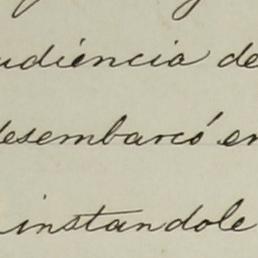 udiéncia de
desembarcó en
instandole